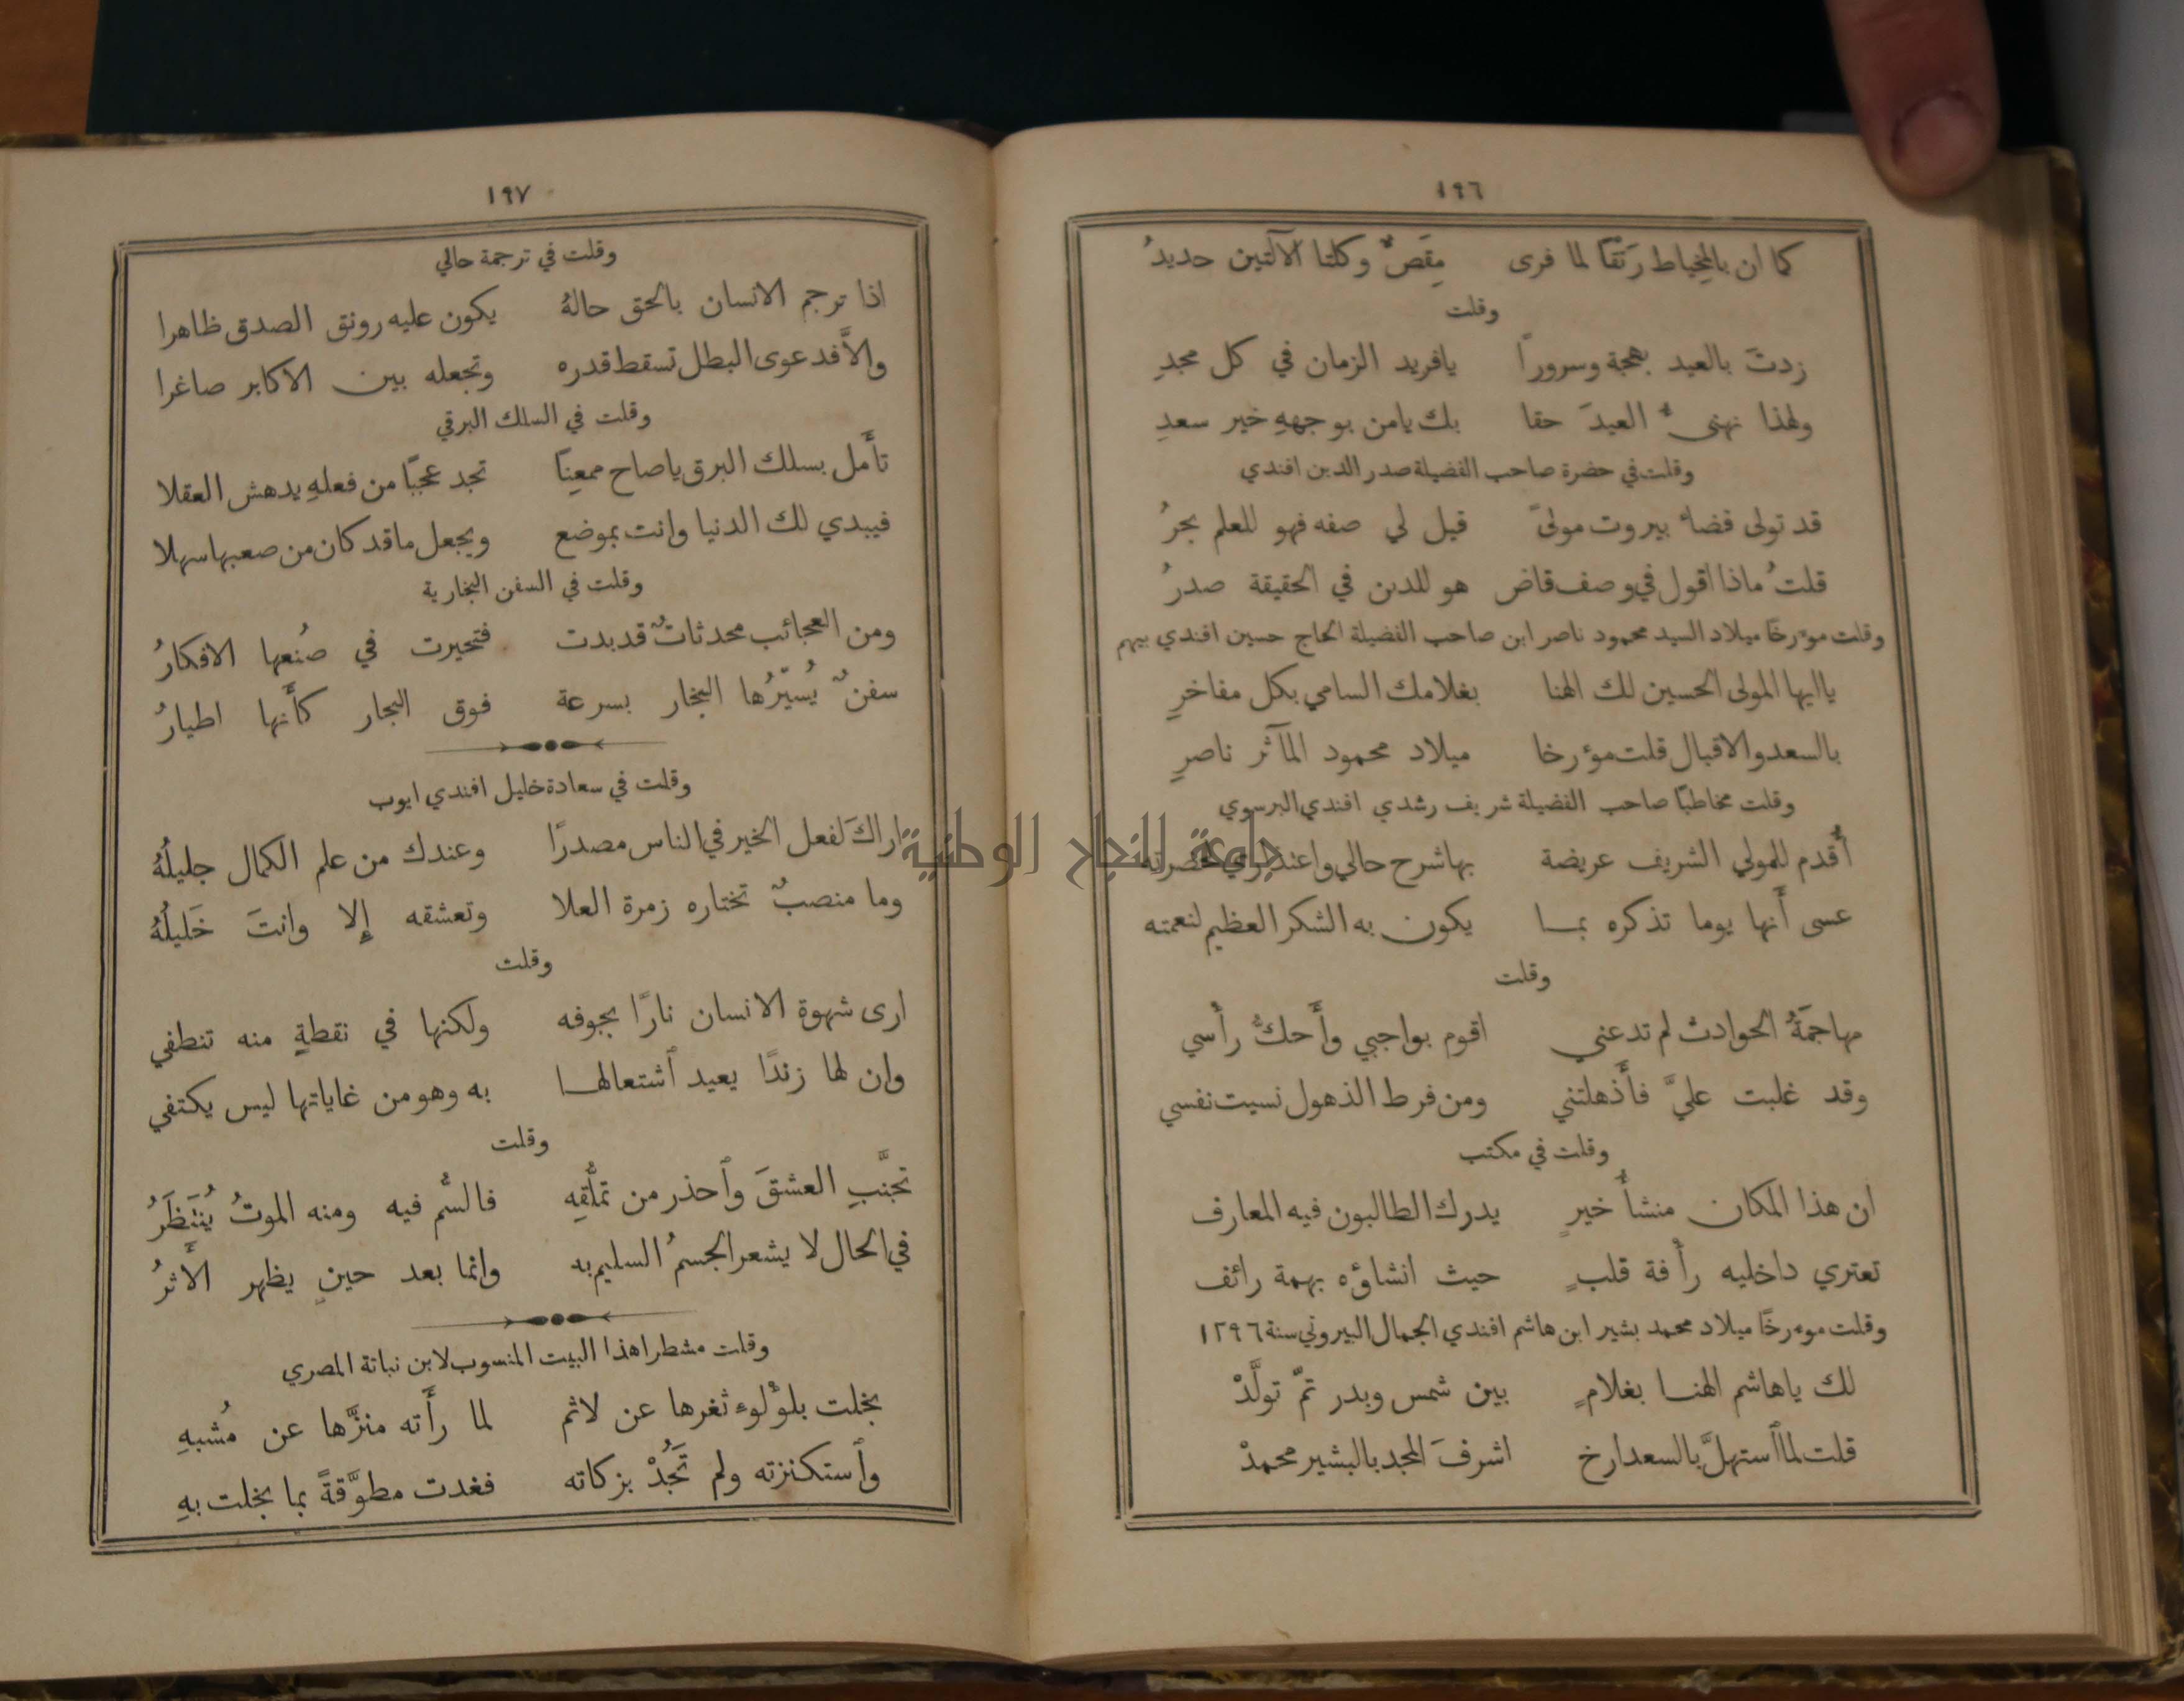 ١٩٦
كما ان بالمِخياط رَتْقًا لما فرى مِقَصٌّ وكلتا الآلتين حديدُ
وقلت
زدتَ بالعيد بهجة وسرورًا يافريد الزمان في كل مجدِ
ولهذا نهنىُّ العيدَ حقا بك يامن بوجههِ خير سعدِ
وقلت في حضرة صاحب الفضيلة صدر الدين افندي
قد تولى قضاء بيروت مولىً قيل لي صفه فهو للعلم بحرُ
قلتُ ماذا اقول في وصف قاض هو للدين في الحقيقة صدرُ
وقلت موءرخًا ميلاد السيد محمود ناصر ابن صاحب الفضيلة الحاج حسين افندي بيهم
ياايها المولى الحسين لك الهنا بغلامك السامي بكل مفاخرِ
بالسعد والاقبال قلت مؤرخا ميلاد محمود المآثر ناصرِ
وقلت مخاطبًا صاحب الفضيلة شريف رشدي افندي البرسوي
أُقدم للمولي الشريف عريضة بها شرح حالي واعتذاري لحضرته
عسى أَنها يوما تذكره بما يكون به الشكر العظيم لنعمته
وقلت
مهاجمَةُ الحوادث لم تدعني اقوم بواجبي وأَحكُّ رأْسي
وقد غلبت عليَّ فأَذهلتني ومن فرط الذهول نسيت نفسي
وقلت في مكتب
ان هذا المكان منشأُ خيرٍ يدرك الطالبون فيه المعارف
تعتري داخليه رأْفة قلبٍ حيث انشاؤه بهمة رائف
وقلت موءرخًا ميلاد محمد بشير ابن هاشم افندي الجمال البيروتي سنة ١٢٩٦
لك ياهاشم الهنا بغلامٍ بين شمس وبدر تمّ تولَّدْ
قلت لما ٱستهلَّ بالسعد أرخ اشرفَ المجد بالبشير محمدْ
١٩٧
وقلت في ترجمة حالي
اذا ترجم الانسان بالحق حالهُ يكون عليه رونق الصدق ظاهرا
والاَّ فدعوى البطل تسقط قدره وتجعله بين الاكابر صاغرا
وقلت في السلك البرقي
تأَمل بسلك البرق ياصاح ممعِنًا تجد عجبًا من فعلهِ يدهش العقلا
فيبدي لك الدنيا وانت بموضع ويجعل ماقد كان من صعبها سهلا
وقلت في السفن البخارية
ومن العجائب محدثاتٌ قد بدت فتحيرت في صُنعها الافكارُ
سفنٌ يُسيّرُها البخار بسرعة فوق البحار كأَنها اطيارُ
وقلت في سعادة خليل افندي ايوب
اراكَ لفعل الخير في الناس مصدرًا وعندك من علم الكمال جليلُهُ
وما منصبٌ تختاره زمرة العلا وتعشقه إِلا وانتَ خَليلُهُ
وقلت
ارى شهوة الانسان نارًا بجوفه ولكنها في نقطةٍ منه تنطفي
وان لها زندًا يعيد ٱشتعالها به وهو من غاياتها ليس يكتفي
وقلت
تجنَّبِ العشقَ وٱحذر من تملُّقِهِ فالسُّم فيه ومنه الموتُ يُنتَظَرُ
في الحال لا يشعر الجسمُ السليم به وانما بعد حينٍ يظهر الأَثرُ
وقلت مشطرا هذا البيت المنسوب لابن نباتة المصري
بخلت بلوْلوءِ ثغرها عن لاثم لما رأَته منزَّها عن مُشبهِ
وٱستكنزته ولم تَجُدْ بزكاته فغدت مطوَّقةً بما بخلت بهِ
جامعة النجاح الوطنية